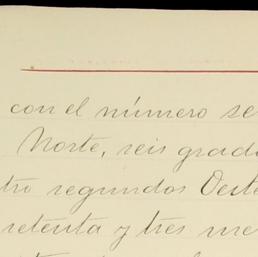 con el número se
Norte, seis grado
tro segundos Oeste
setenta y tres me